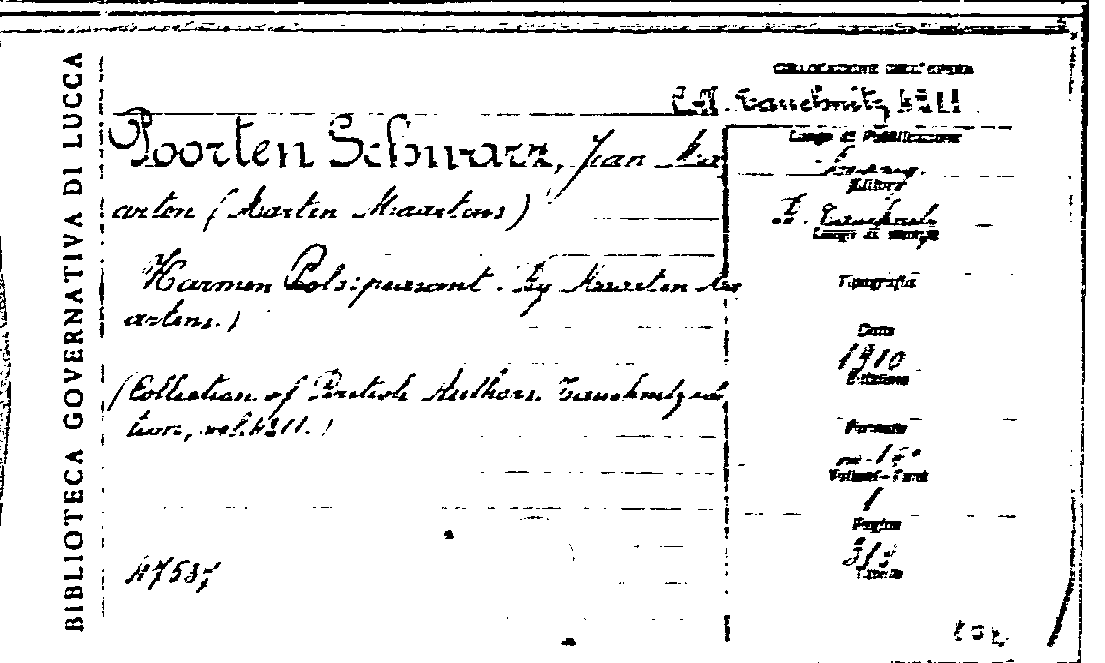 BIBLIOTECA GOVERNATIVA DI LUCCA
COLLOCAZIONE DELL'OPERA
Tauchnitz 4211
Poorten Schwarz, Jean Ma
arten (Marten Maartens)
Harmen Pols: peasant. By Maarten Ma
artens.)
(Collection of British Authors. Tauchnitz edi
tion, vol. 4211.)
47537
Luogo di Pubblicazione
Editore
Tauchnitz
Luogo di stampa
Tipografia
Data
1910
Edizione
Formato
in-16°
Volumi - Tomi
1
Pagine